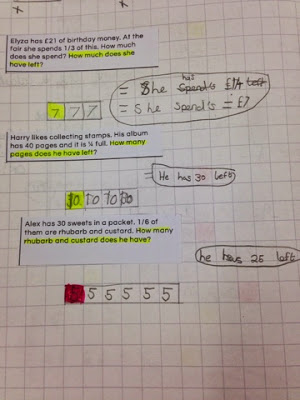 x
x
Elyza has £21 of birthday money. At the
fair she spends 1/3 of this. How much
does she spend? How much does she
have left?
= She has spends £14 left
= She spends = £7
7 7 7
Harry likes collecting stamps. His album
has 40 pages and it is ¼ full. How many
pages does he have left?
= He has 30 left
10 10 10 10
Alex has 30 sweets in a packet. 1/6 of
them are rhubarb and custard. How many
rhubarb and custard does he have?
he has 25 left
5 5 5 5 5 5